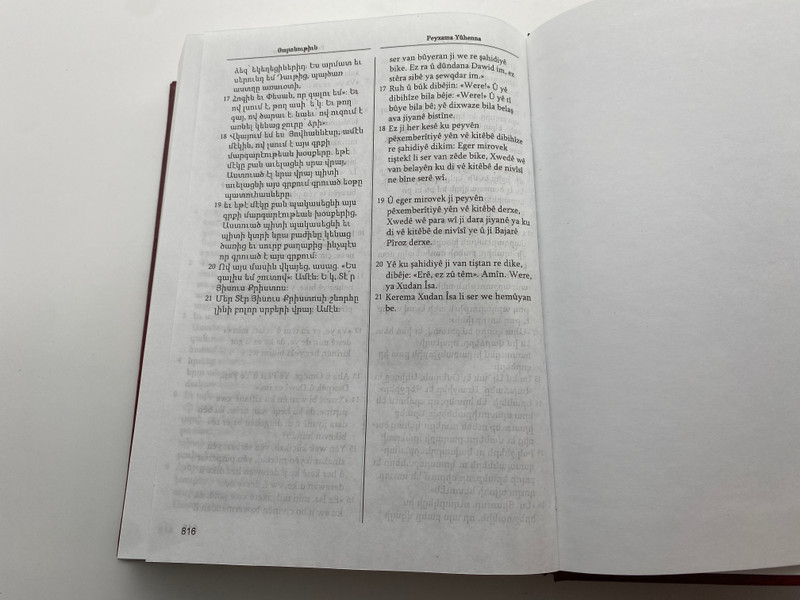 Յայտնութիւն
ձեզ՝ եկեղեցիներիդ: Ես արմատ եւ
սերունդ եմ Դաւթից, պայծառ
աստղը առաւօտի.
17 Հոգին եւ Փեսան, որ գալու եմ»: Եւ
ով լսում է, թող ասի՝ ե կ: Եւ թող
գայ, ով ծարաւ է. նաեւ՝ ով ուզում է
առնել կենաց ջուրը՝ ձրի»:
18 Վկայում եմ ես՝ Յովհաննէսը, ամէն
մէկին, ով լսում է այս գրքի
մարգարէութեան խօսքերը. եթէ
մէկը բան աւելացնի սրա վրայ,
Աստուած էլ նրա վրայ պիտի
աւելացնի այս գրքում գրուած եօթը
պատուհասները.
19 եւ եթէ մէկը բան պակասեցնի այս
գրքի մարգարէութեան խօսքերից,
Աստուած պիտի պակասեցնի եւ
պիտի կտրի նրա բաժինը կենաց
ծառից եւ սուրբ քաղաքից՝ ինչպէս
որ գրուած է այս գրքում:
20 Ով այս մասին վկայեց, ասաց. «Ես
գալիս եմ շուտով»: Ամէն: Ե կ, Տէ ր
Յիսուս Քրիստոս:
21 Մեր Տէր Յիսուս Քրիստոսի շնորհը
լինի բոլոր սրբերի վրայ: Ամէն:
816
Peyxama Yûhenna
ser van bûyeran ji we re şahidiyê
bike. Ez ra û dûndana Dawid im, ez
stêra sibê ya şewqdar im.»
17 Ruh û bûk dibêjin: «Were!» Û yê
dibihîze bila bêje: «Were!» Û yê tî
bûye bila bê; yê dixwaze bila belaş
ava jiyanê bistîne.
18 Ez ji her kesê ku peyvên
pêxemberîtiyê yên vê kitêbê dibihîze
re şahidiyê dikim: Eger mirovek
tiştekî li ser van zêde bike, Xwedê wê
van belayên ku di vê kitêbê de nivîsî
ne bîne serê wî.
19 Û eger mirovek ji peyvên
pêxemberîtiyê yên vê kitêbê derxe,
Xwedê wê para wî ji dara jiyanê ya ku
di vê kitêbê de nivîsî ye û ji Bajarê
Pîroz derxe.
20 Yê ku şahidiyê ji van tiştan re dike,
dibêje: «Erê, ez zû têm». Amîn. Were,
ya Xudan Îsa.
21 Kerema Xudan Îsa li ser we hemûyan
be.